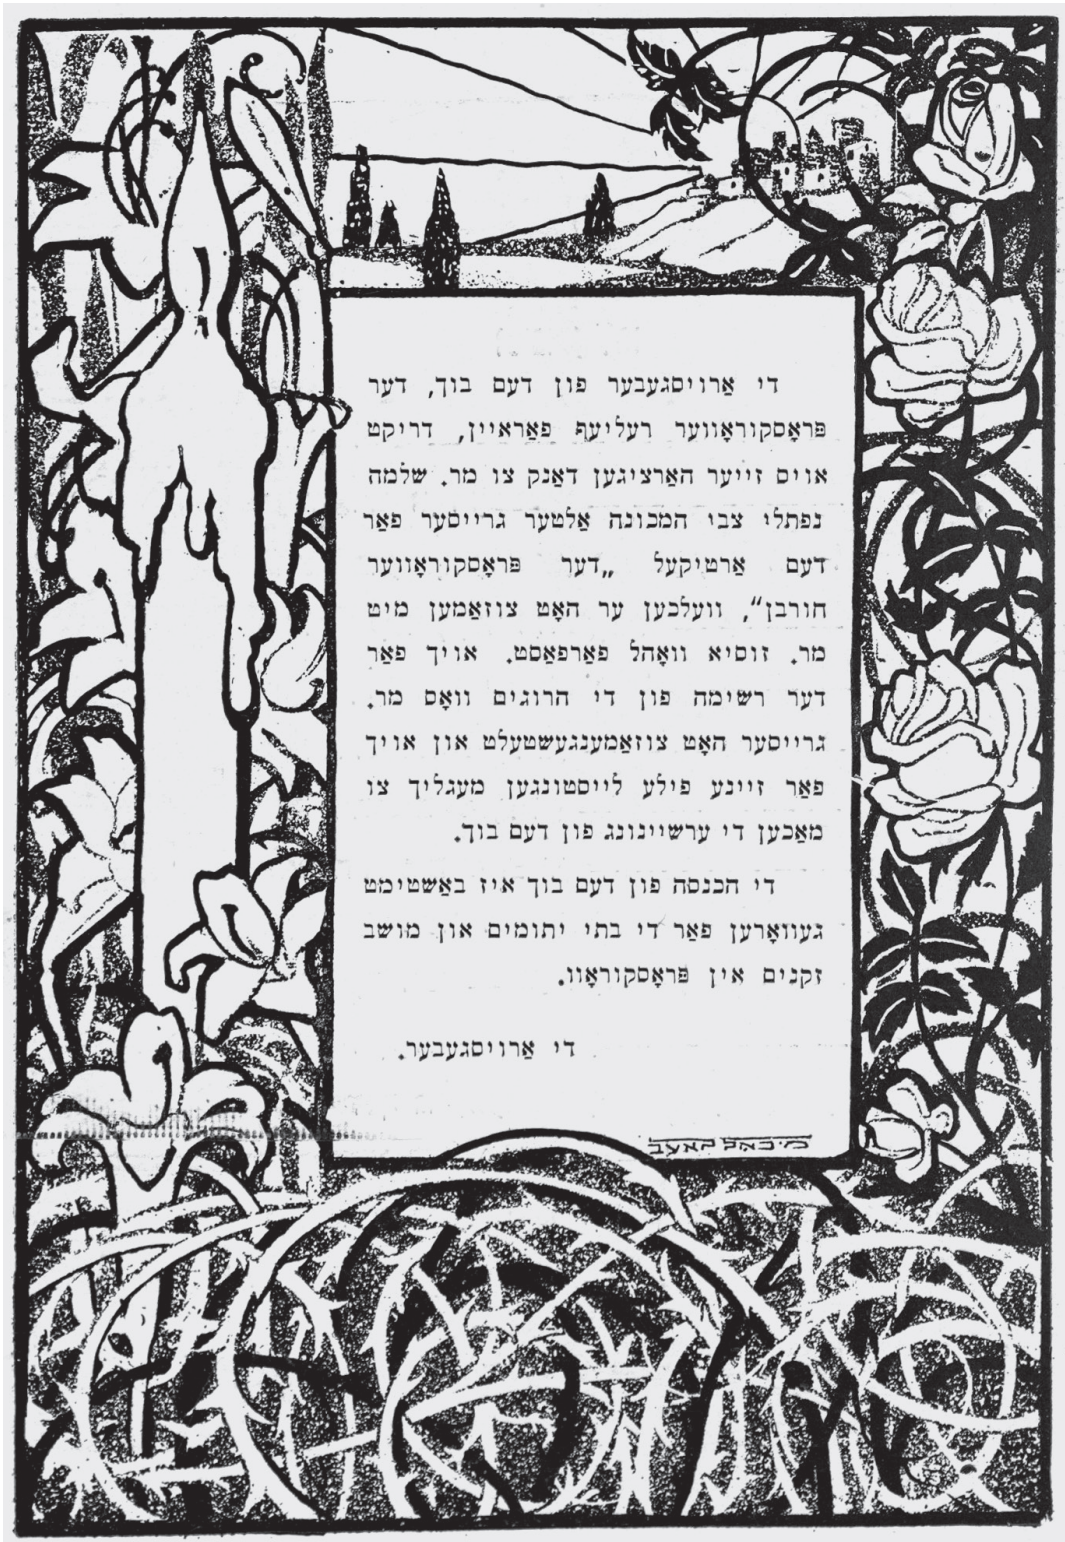 די אַרויסגעבער פון דעם בוך, דער
פּראָסקוראָווער רעליעף פאַראיין, דריקט
אויס זייער האַרציגען דאַנק צו מר. שלמה
נפתלי צבי המכונה אַלטער גרייסער פאַר
דעם אַרטיקעל „דער פּראָסקוראָווער
חורבן“, וועלכען ער האָט צוזאַמען מיט
מר. זוסיא וואָהל פאַרפאַסט. אויך פאַר
דער רשימה פון די הרוגים וואָס מר.
גרייסער האָט צוזאַמענגעשטעלט און אויך
פאַר זיינע פילע לייסטונגען מעגליך צו
מאַכען די ערשיינונג פון דעם בוך.
די הכנסה פון דעם בוך איז באַשטימט
געוואָרען פאַר די בתי יתומים און מושב
זקנים אין פּראָסקוראָוו.
די אַרויסגעבער.